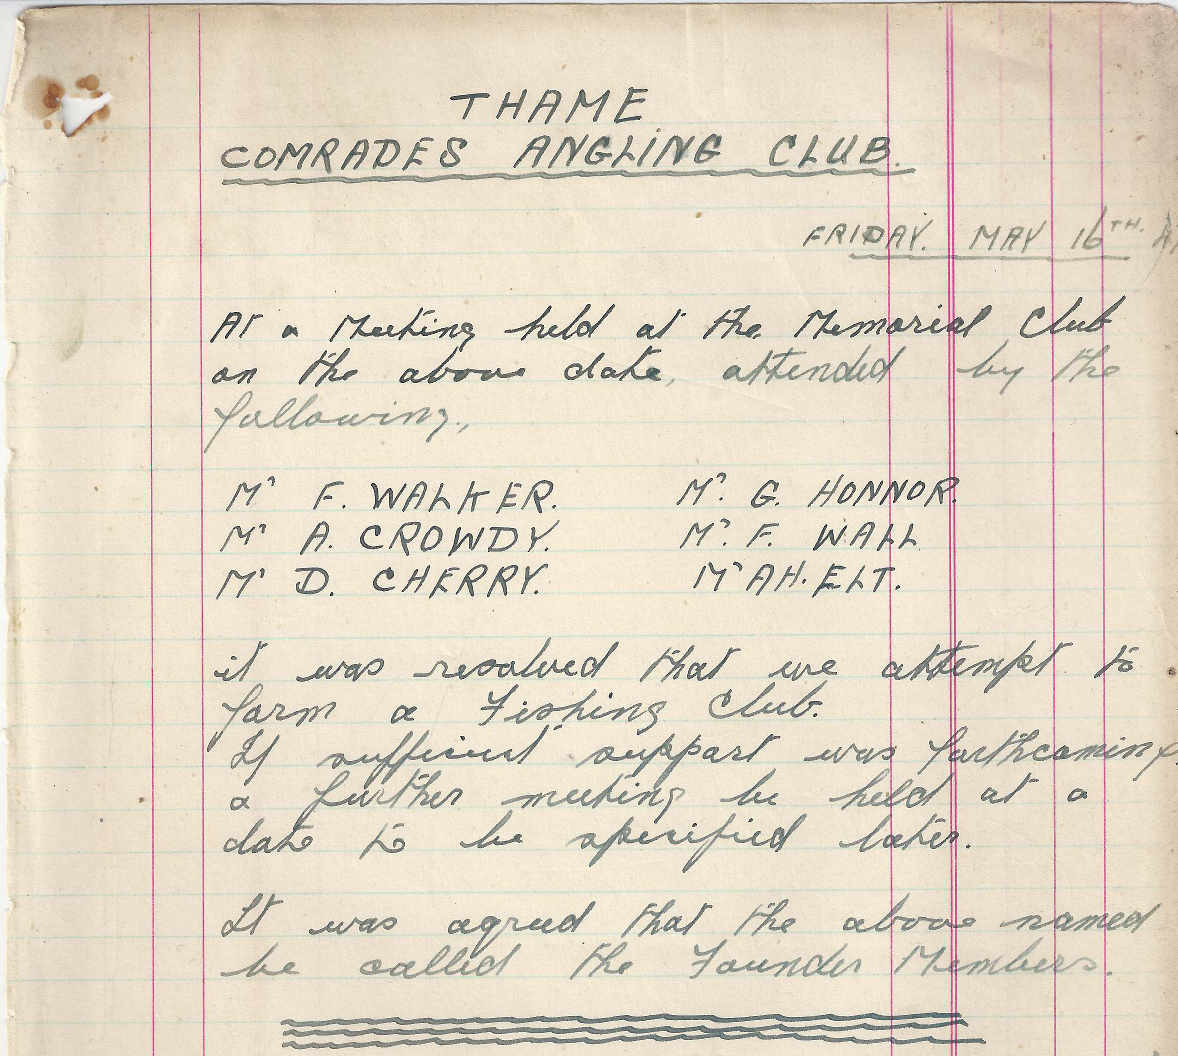 THAME
COMRADES ANGLING CLUB.
FRIDAY. MAY 16TH.
At a Meeting held at the Memorial Club
on the above date, attended by the
following.,
Mr F. WALKER. Mr. G. HONNOR.
Mr A. CROWDY. Mr. F. WALL
Mr D. CHERRY. Mr AH. ELT.
it was resolved that we attempt to
form a Fishing Club.
If sufficient support was forthcoming
a further meeting be held at a
date to be specified later.
It was agreed that the above named
be called the Founder Members.